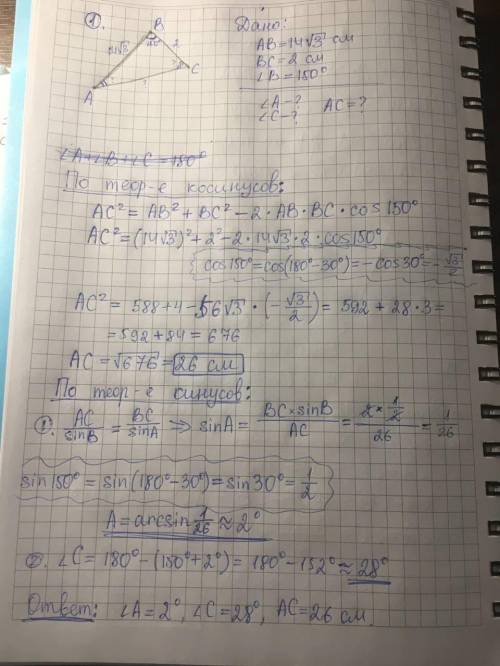 1.
B
14√3
150°
2
C
A
Дано:
AB=14√3 см
BC=2 см
∠B=150°
∠A-? AC=?
∠C-?
∠A+∠B+∠C=180°
По теор-е косинусов:
AC²=AB²+BC²-2·AB·BC·cos150°
AC²=(14√3)²+2²-2·14√3·2·cos150°
cos150°=cos(180°-30°)=-cos30°=-√3/2
AC²=588+4-56√3·(-√3/2)=592+28·3=
=592+84=676
AC=√676=26 см
По теор-е синусов:
1. AC/sinB=BC/sinA => sinA=BC×sinB/AC=2×1/2/26=1/26
sin150°=sin(180°-30°)=sin30°=1/2
A=arcsin1/26≈2°
2. ∠C=180°-(150°+2°)=180°-152°≈28°
Ответ: ∠A=2°, ∠C=28°, AC=26 см.